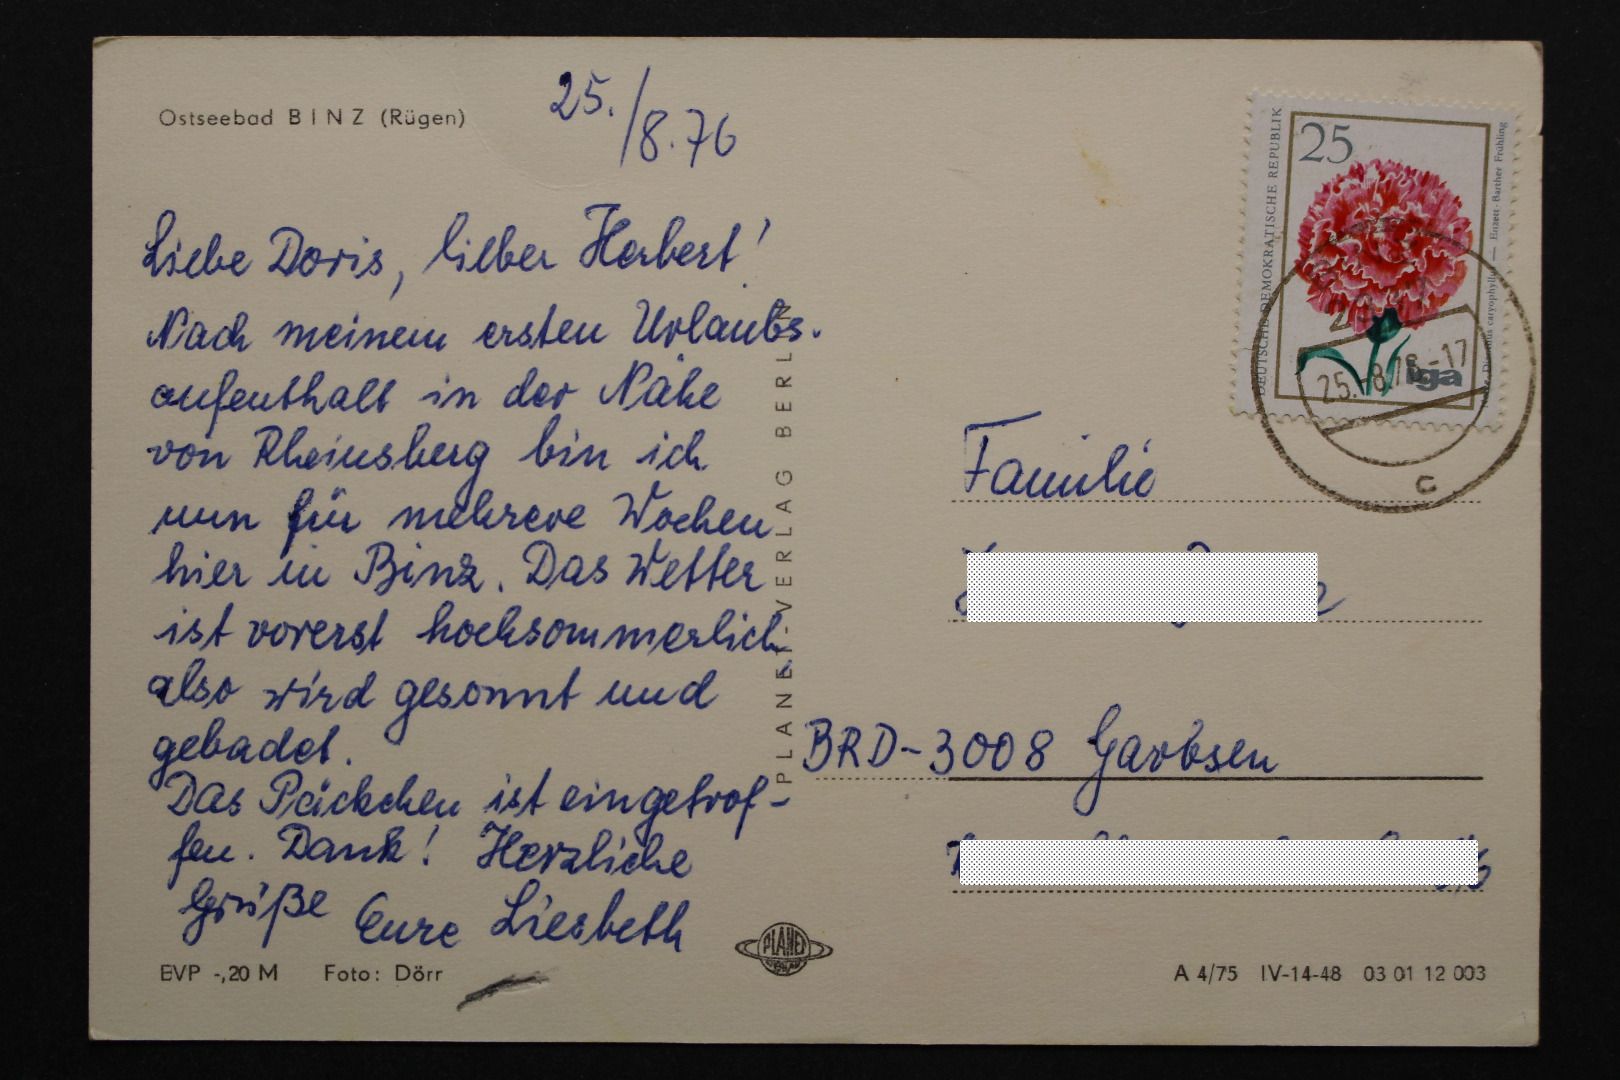 Ostseebad BINZ (Rügen)
25./8.76
Liebe Doris, lieber Herbert!
Nach meinem ersten Urlaubs-
aufenthalt in der Nähe
von Rheinsberg bin ich
nun für mehrere Wochen
hier in Binz. Das Wetter
ist vorerst hochsommerlich
also wird gesonnt und
gebadet.
Das Päckchen ist eingetrof-
fen. Dank! Herzliche
Grüße Eure Liesbeth
EVP -,20 M Foto: Dörr
PLANET-VERLAG BERLIN
PLANET
VERLAG
DEUTSCHE DEMOKRATISCHE REPUBLIK
25
Dianthus caryophyllus — Enzett-Barther Frühling
iga
25.-8.76-17
c
Familie
BRD-3008 Garbsen
A 4/75 IV-14-48 03 01 12 003